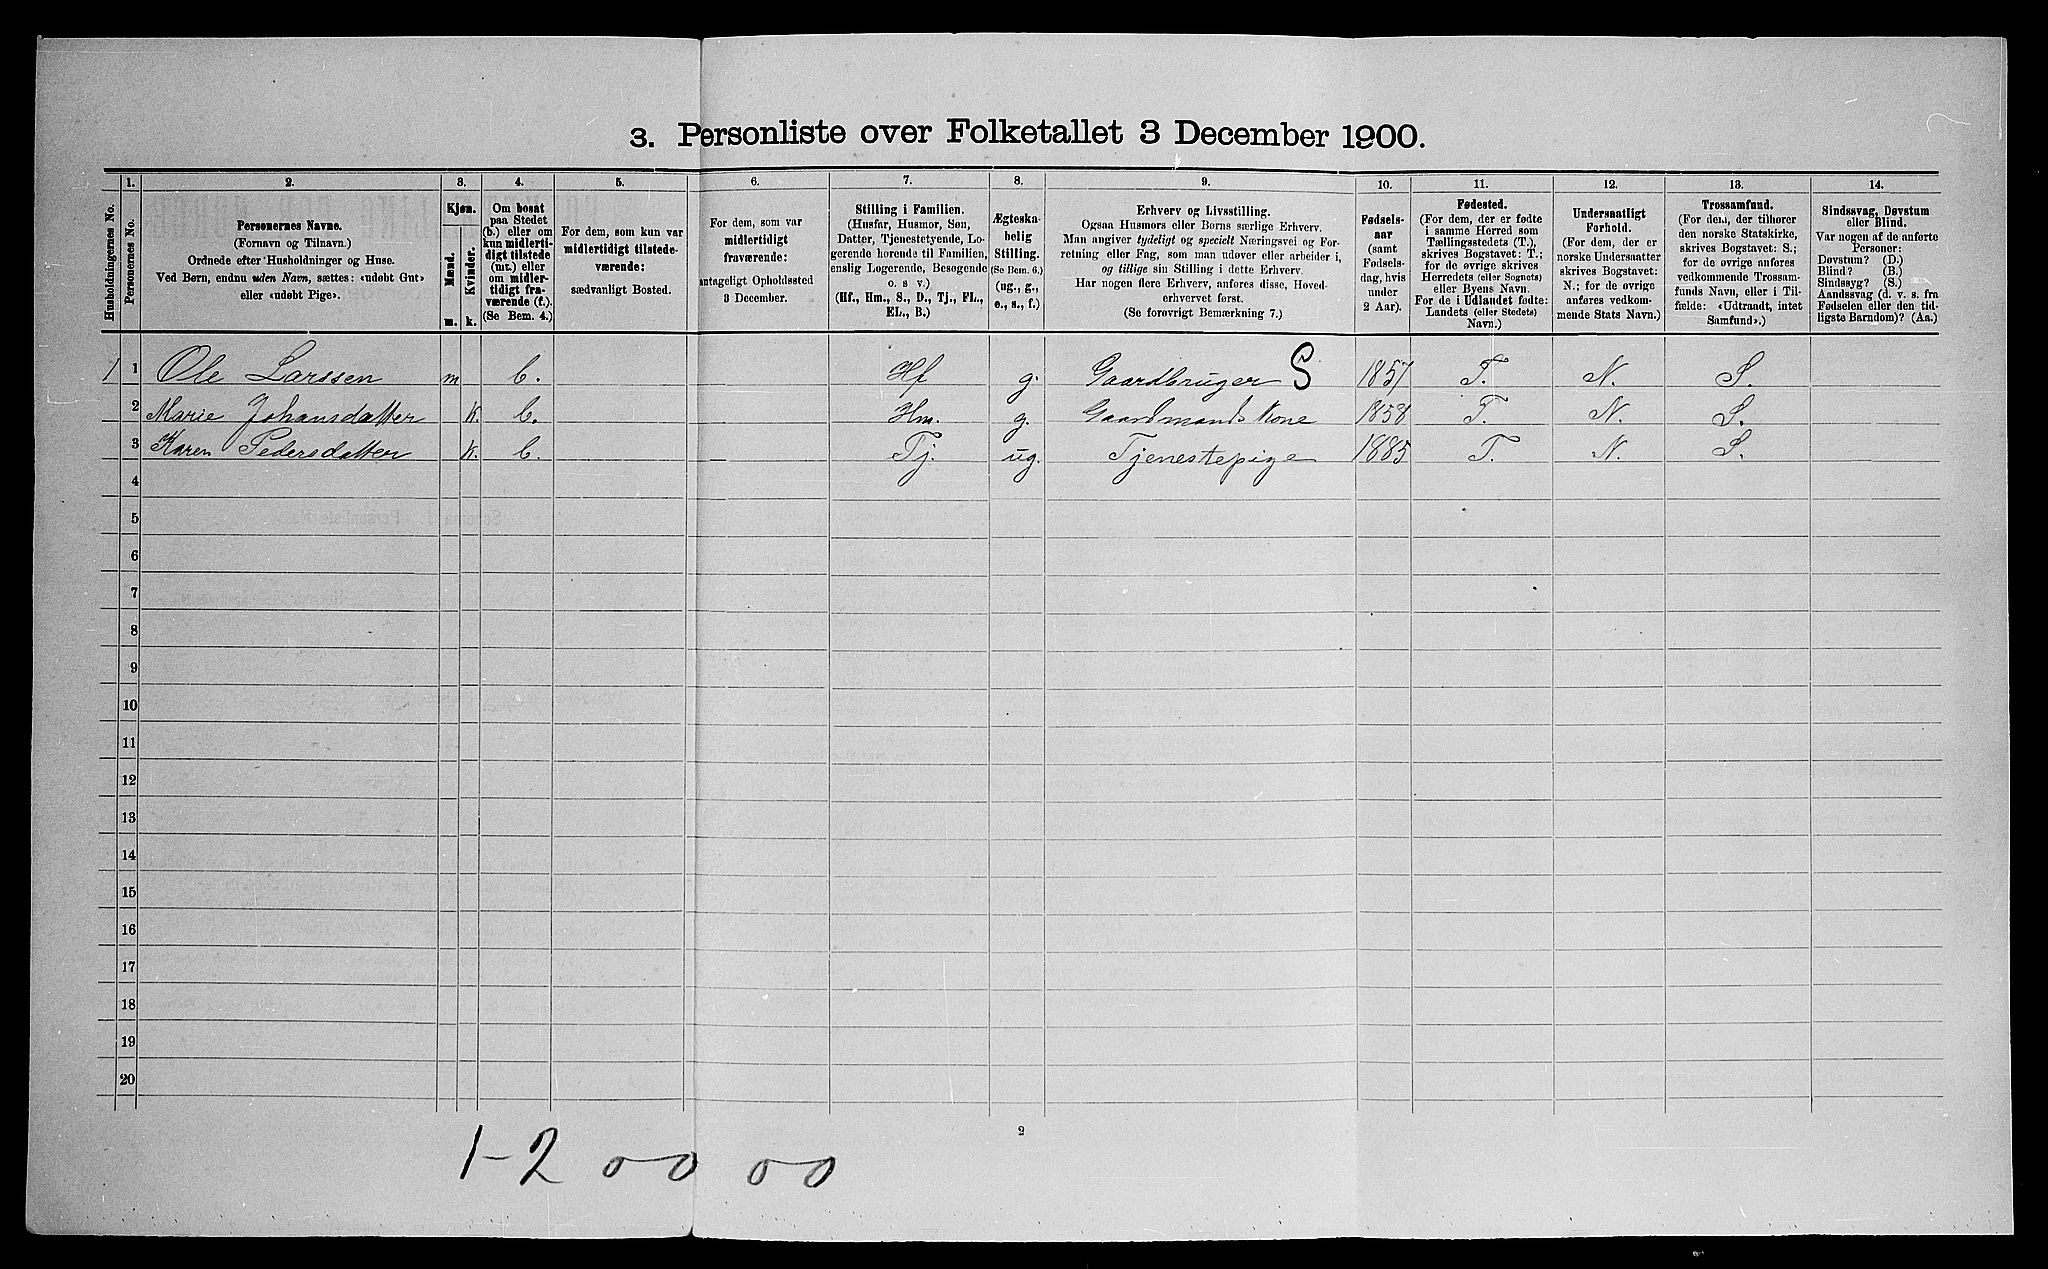 3. Personliste over Folketallet 3 December 1900.
1. 2. 3. 4. 5. 6. 7. 8. 9. 10. 11. 12. 13. 14.
Husholdningernes No.
Personernes No.
Personernes Navne.
(Fornavn og Tilnavn.)
Ordnede efter Husholdninger og Huse.
Ved Børn, endnu uden Navn, sættes: «udøbt Gut»
eller «udøbt Pige».
Kjøn.
Mænd.
Kvinder.
m. k.
Om bosat
paa Stedet
(b.) eller om
kun midlerti-
digt tilstede
(mt.) eller
om midler-
tidigt fra-
værende (f.).
(Se Bem. 4.)
For dem, som kun var
midlertidigt tilstede-
værende:
sædvanligt Bosted.
For dem, som var
midlertidigt
fraværende:
antageligt Opholdssted
3 December.
Stilling i Familien.
(Husfar, Husmor, Søn,
Datter, Tjenestetyende, Lo-
gerende hørende til Familien,
enslig Logerende, Besøgende
o. s v.)
(Hf., Hm., S., D., Tj., FL.,
EL., B.)
Ægteska-
belig
Stilling.
(Se Bem. 6.)
(ug., g.,
e., s., f.)
Erhverv og Livsstilling.
Ogsaa Husmors eller Børns særlige Erhverv.
Man angiver tydeligt og specielt Næringsvei og For-
retning eller Fag, som man udøver eller arbeider i,
og tillige sin Stilling i dette Erhverv.
Har nogen flere Erhverv, anføres disse, Hoved-
erhvervet først.
(Se forøvrigt Bemærkning 7.)
Fødsels-
aar
(samt
Fødsels-
dag, hvis
under
2 Aar).
Fødested.
(For dem, der er fødte
i samme Herred som
Tællingsstedets (T.),
skrives Bogstavet: T.;
for de øvrige skrives
Herredets (eller Sognets)
eller Byens Navn.
For de i Udlandet fødte:
Landets (eller Stedets)
Navn.)
Undersaatligt
Forhold.
(For dem, der er
norske Undersaatter
skrives Bogstavet:
N.; for de øvrige
anføres vedkom-
mende Stats Navn.)
Trossamfund.
(For dem, der tilhører
den norske Statskirke,
skrives Bogstavet: S.;
for de øvrige anføres
vedkommende Trossam-
funds Navn, eller i Til-
fælde: «Udtraadt, intet
Samfund».)
Sindssvag, Døvstum
eller Blind.
Var nogen af de anførte
Personer:
Døvstum? (D.)
Blind? (B.)
Sindssyg? (S.)
Aandssvag (d. v. s. fra
Fødselen eller den tid-
ligste Barndom)? (Aa.)
1 1 Ole Larssen m b. Hf g. Gaardbruger S 1857 T. N. S.
2 Marie Johansdatter k. b. Hm. g. Gaardmands Kone 1858 T. N. S.
3 Karen Pedersdatter k. b. Tj. ug. Tjenestepige 1885 T. N. S.
4
5
6
7
8
9
10
11
12
13
14
15
16
17
18
19
20
2
1-2 00 00